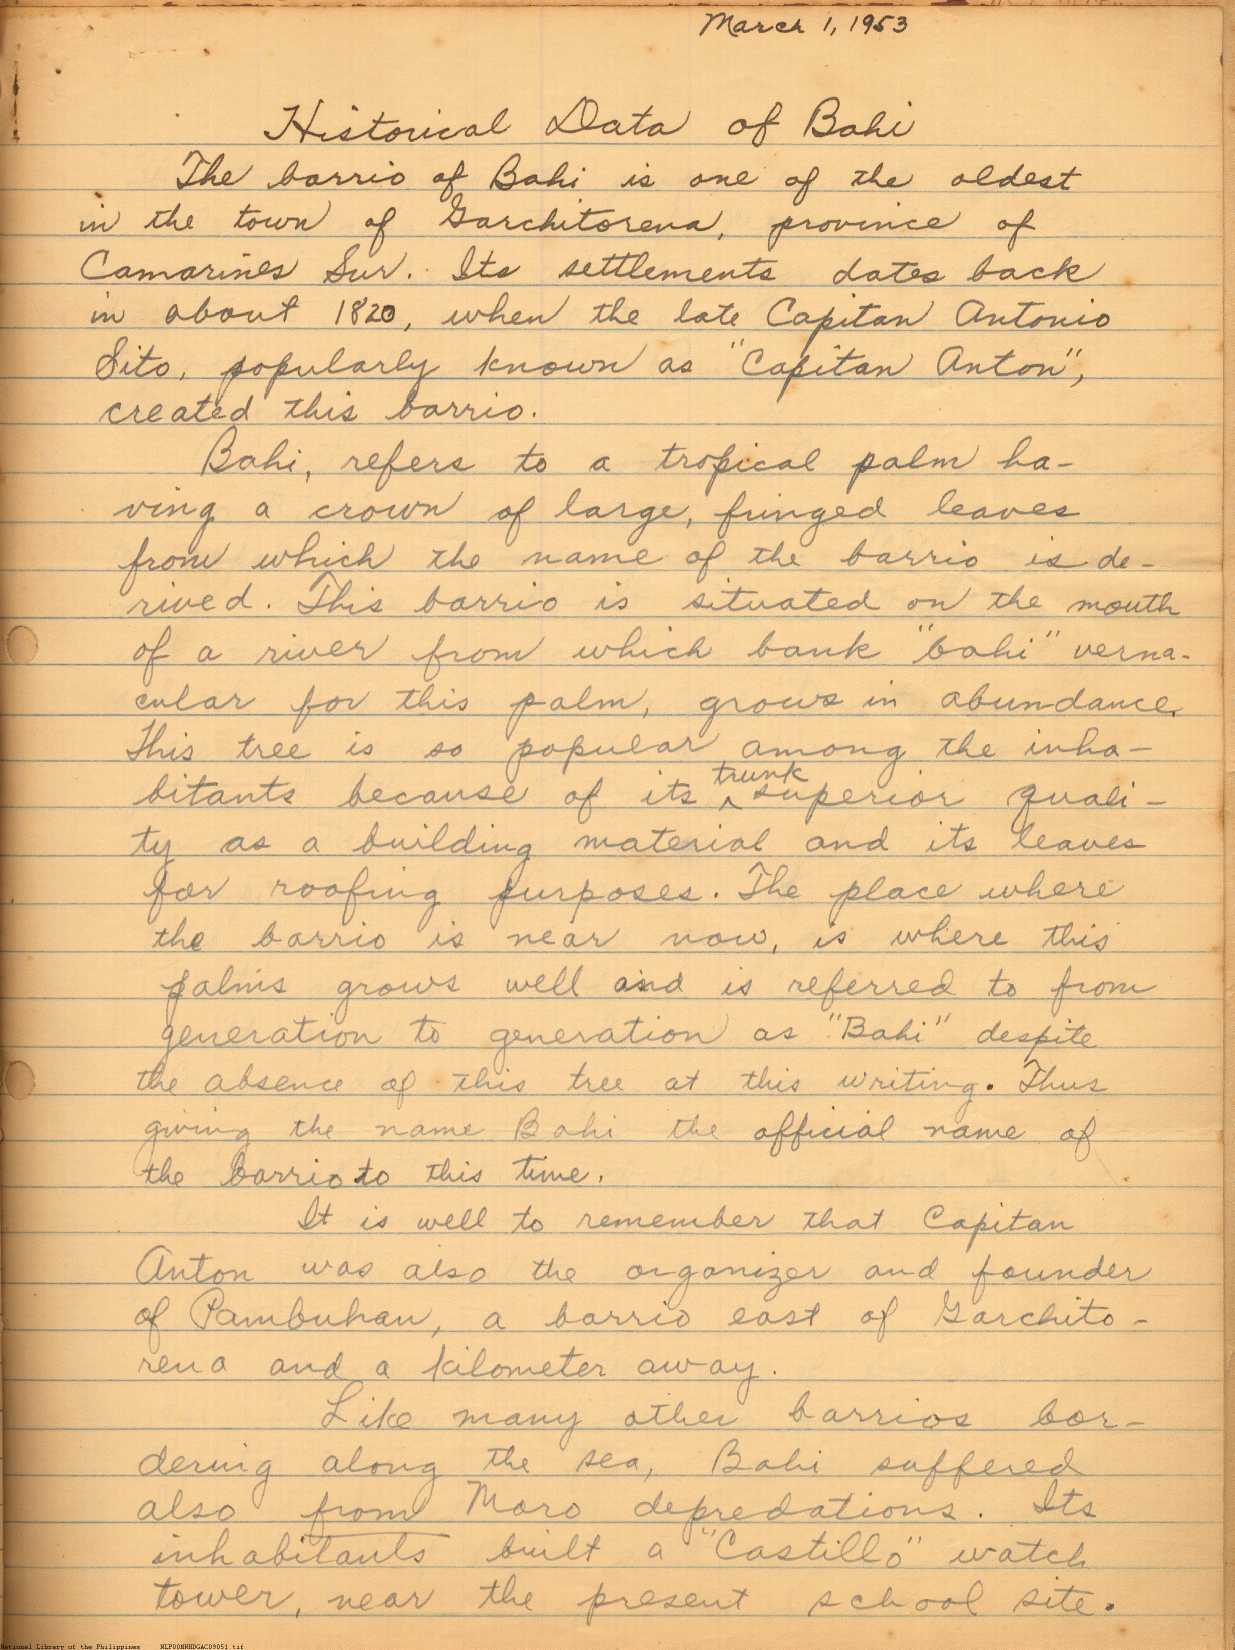 March 1, 1953
Historical Data of Bahi
The barrio of Bahi is one of the oldest
in the town of Garchitorena, province of
Camarines Sur. Its settlements dates back
in about 1820, when the late Capitan Antonio
Sito, popularly known as "Capitan Anton",
created this barrio.
Bahi, refers to a tropical palm ha-
ving a crown of large, fringed leaves
from which the name of the barrio is de-
rived. This barrio is situated on the mouth
of a river from which bank "bahi" verna-
cular for this palm, grows in abundance.
This tree is so popular among the inha-
bitants because of its trunk superior quali-
ty as a building material and its leaves
for roofing purposes. The place where
the barrio is near now, is where this
palms grows well and is referred to from
generation to generation as "Bahi" despite
the absence of this tree at this writing. Thus
giving the name Bahi the official name of
the barrio to this time.
It is well to remember that Capitan
Anton was also the organizer and founder
of Pambuhan, a barrio east of Garchito-
rena and a kilometer away.
Like many other barrios bor-
dering along the sea, Bahi suffered
also from Moro depredations. Its
inhabitants built a "Castillo" watch
tower, near the present school site.
National Library of the Philippines NLP00NHHDGAC09051.tif